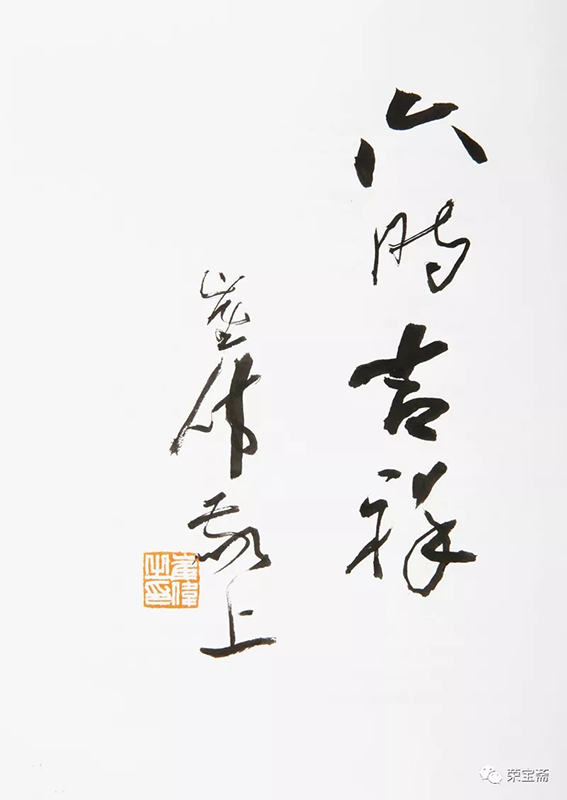 六时吉祥
崔伟敬上
崔偉之印
荣宝斋